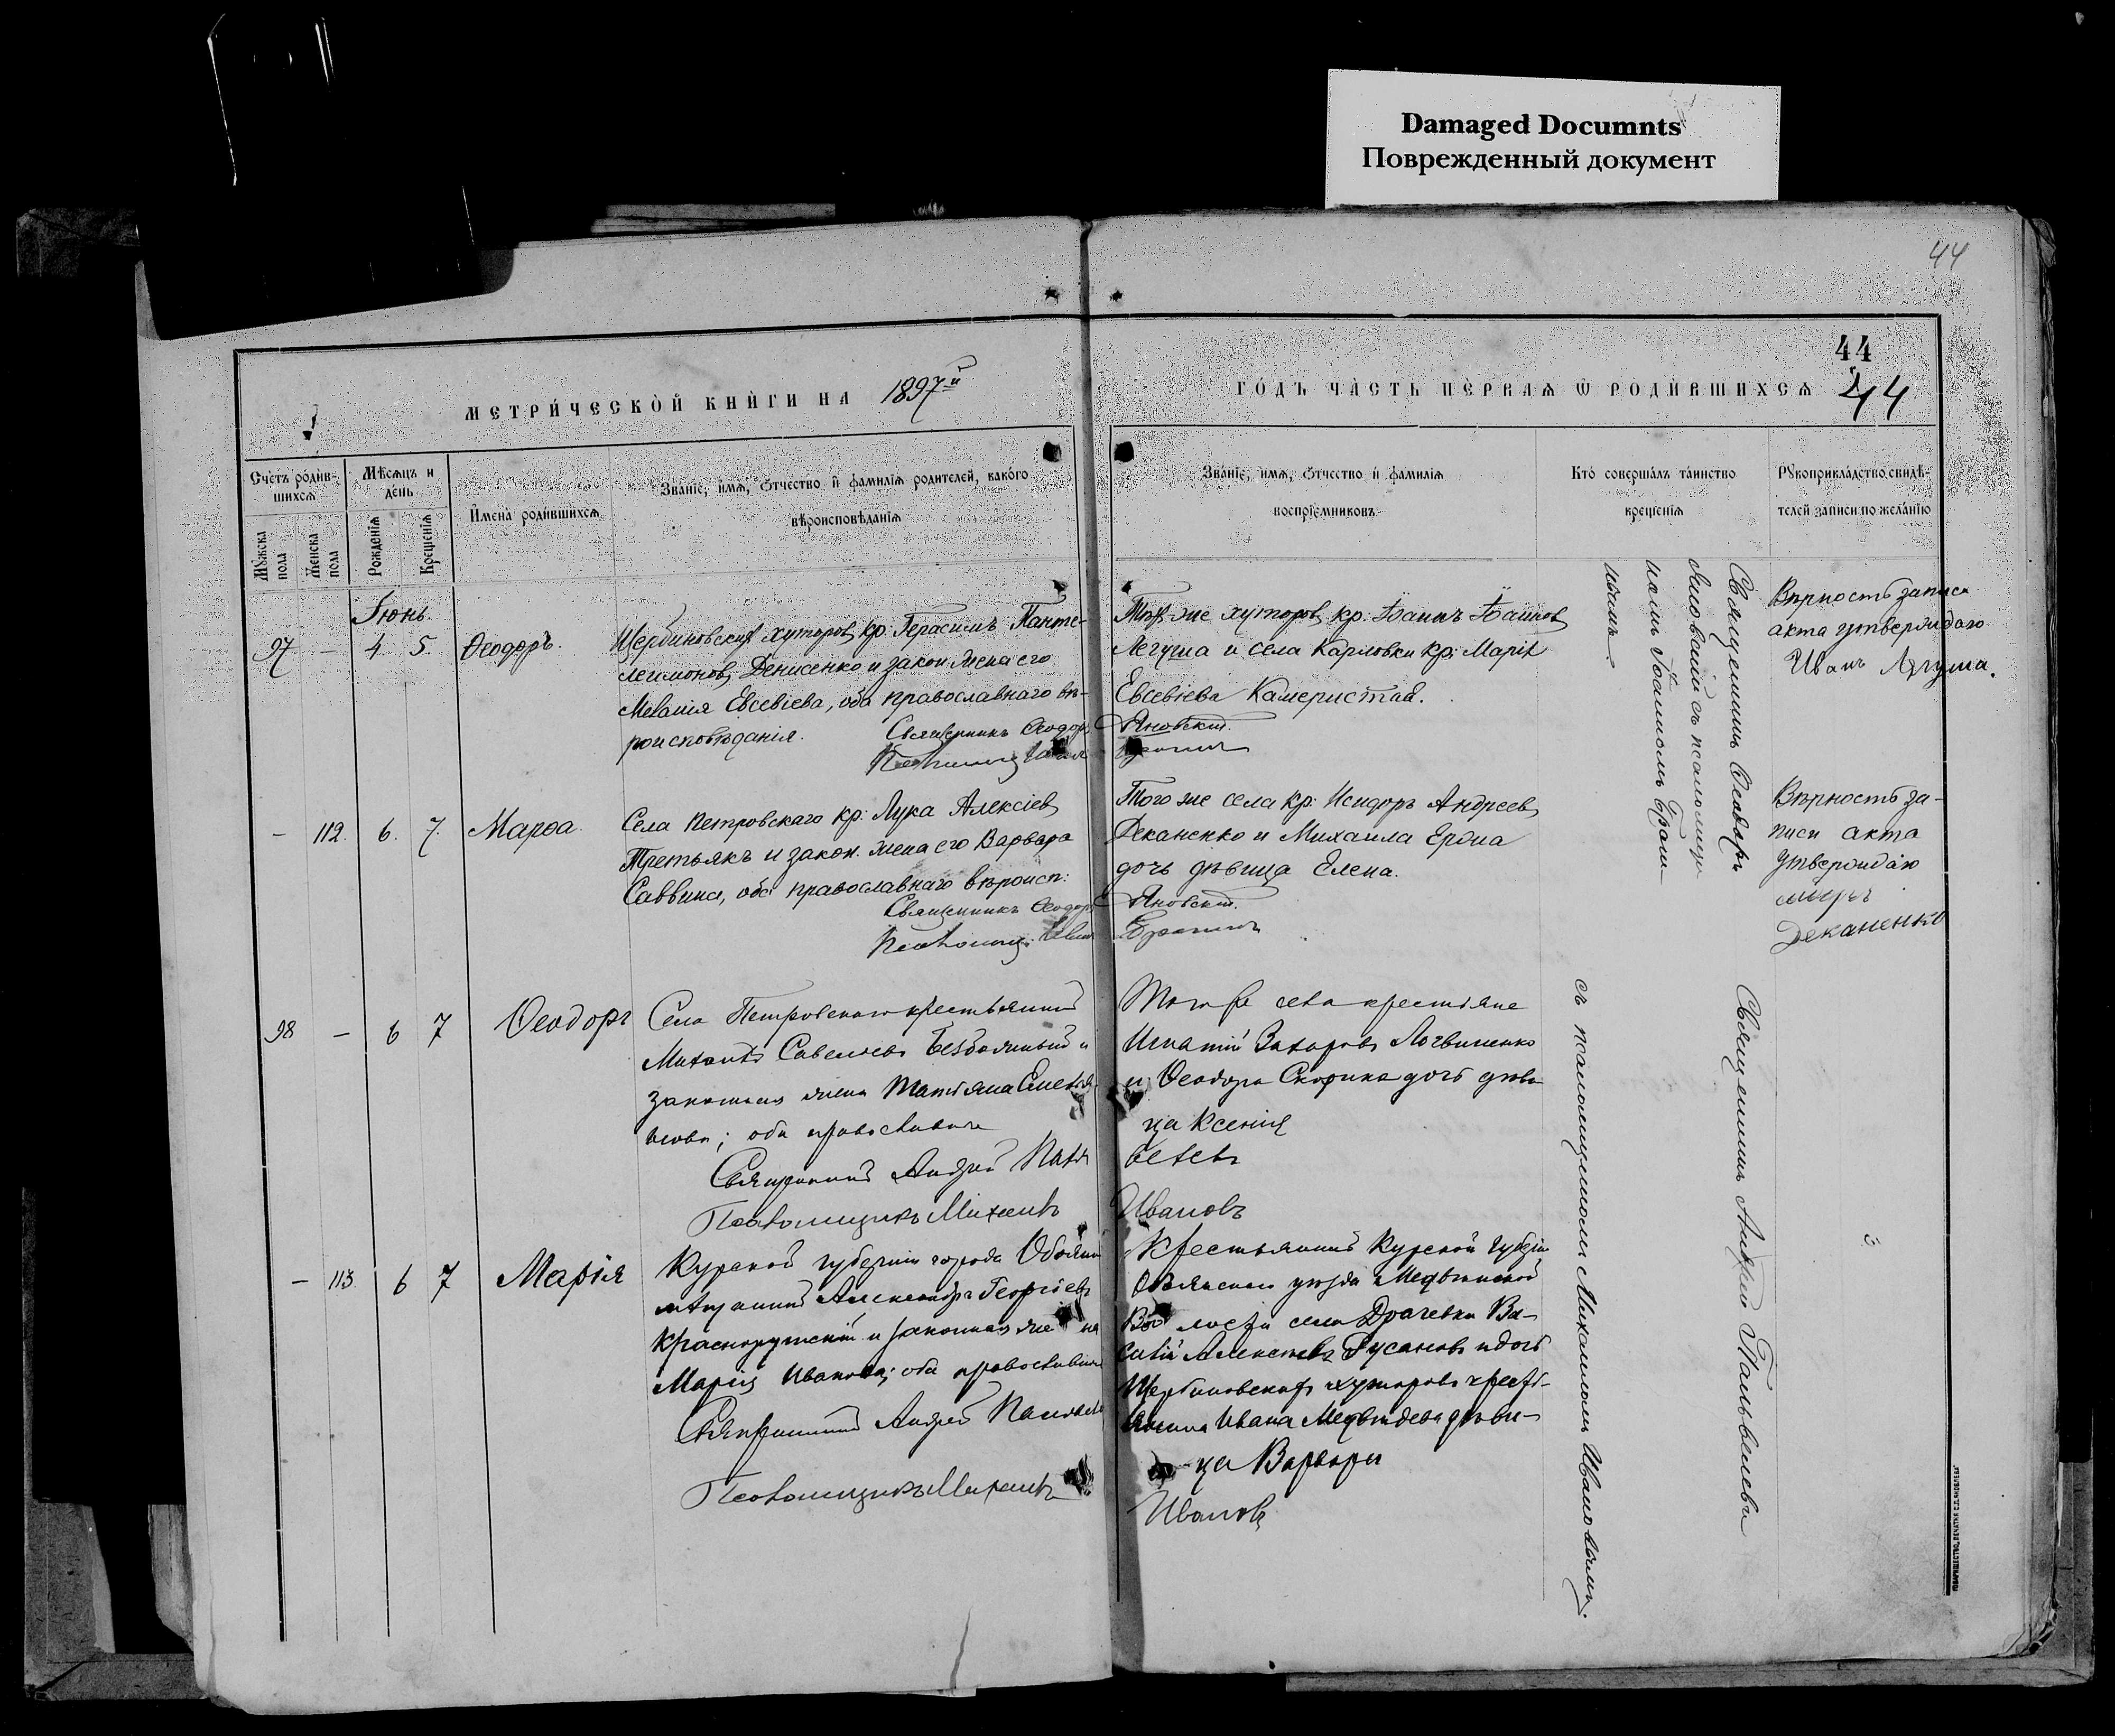 Damaged Documnts
Поврежденный документ
44
44
МЕТРИЧЕСКОЙ КНИГИ НА 1897й
ГОДЪ ЧАСТЬ ПЕРВАЯ Ѿ РОДИВШИХСЯ 44
Счетъ родив-
шихся
Мѣсяцъ и
день
Имена родившихся
Званіе, имя, ѻтчество и фамилія родителей, какого
вѣроисповѣданія
Мужска
пола
Женска
пола
Рожденія
Крещенія
Званіе, имя, ѻтчество и фамилія
воспріемниковъ
Кто совершалъ таинство
крещенія
Рукоприкладство свидѣ-
телей записи по желанію
Іюнь
97 — 4. 5. Ѳеодоръ.
Щербиновских хуторов, кр: Герасимъ Панте-
леимонов, Денисенко и закон. жена его
Меланія Евсевіева, оба православнаго вѣ-
роисповѣданія.
Священникъ Ѳеодор
Тѣхъ-же хуторов, кр. Іоаннъ Іоаннов,
Легуша и села Карловки кр: Марія
Евсевіева Камеристая.
Яновскій.
Священникъ Ѳеодоръ
Яновскій съ псаломщи-
комъ Іоанномъ Браш-
Вѣрность записи
акта утверждаю
Иванъ Лягуша.
— 112. 6. 7. Марѳа.
Села Петровскаго кр: Лука Алексіев,
Третьякъ и закон. жена его Варвара
Саввина, оба православнаго вѣроисп:
Священникъ Ѳеодор
Того же села кр: Исидоръ Андреев,
Деканенко и Михаила
дочь дѣвица Елена.
Яновскій.
Вѣрность за-
писи акта
утверждаю
Деканенко
98 — 6 7 Ѳеодоръ
Села Петровскаго крестьянинъ
Михаилъ Савельевъ и
законная жена Татьяна
оба православные
Священникъ Андрей Павл
Псаломщикъ Михаилъ
Того же села крестьяне
Игнатій Захаровъ Логвиненко
и Ѳеодора Скорика дочь дѣви-
ца Ксенія
Ивановъ
Священникъ Андрей
съ псаломщикомъ Михаиломъ Ивановымъ.
— 113. 6 7 Марія
Курской губерніи города Обояни
мѣщанинъ Александръ Георгіевъ
Краснорутскій и законная жена
Марія Иванова; оба православные
Священникъ Андрей
Псаломщикъ Михаилъ
Крестьянинъ Курской губерніи
Обоянскаго уѣзда Медвѣнской
Волости села Драчевки Ва-
силій Алексѣевъ Русановъ и дочь
Щербиновскихъ хуторовъ кресть-
янина Ивана Медвѣдева дѣви-
ца Варвара
Иванов